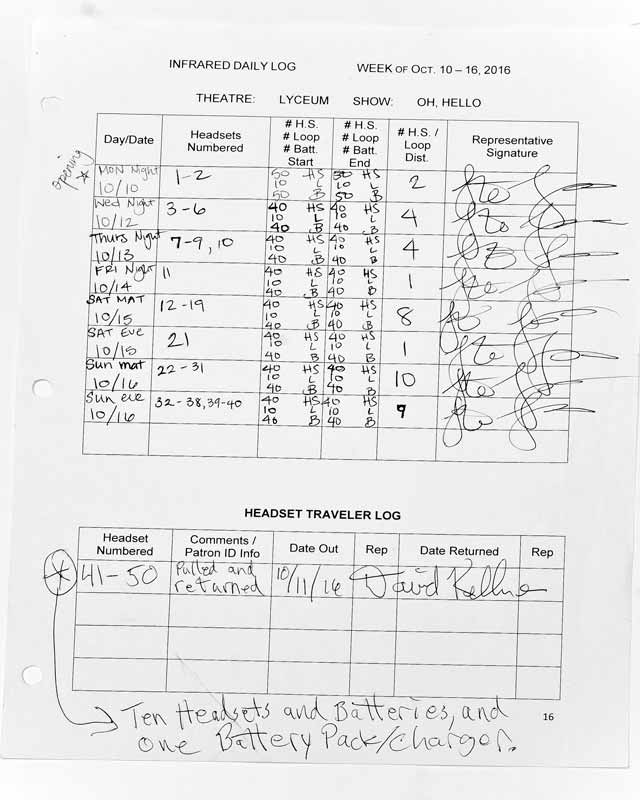 INFRARED DAILY LOG WEEK OF OCT. 10 – 16, 2016
THEATRE: LYCEUM SHOW: OH, HELLO
Day/Date Headsets Numbered # H.S. # Loop # Batt. Start # H.S. # Loop # Batt. End # H.S. / Loop Dist. Representative Signature
opening
MON Night 10/10 1-2 50 HS 10 L 50 B 50 HS 10 L 50 B 2
Wed Night 10/12 3-6 40 HS 10 L 40 B 40 HS 10 L 40 B 4
Thurs Night 10/13 7-9, 10 40 HS 10 L 40 B 40 HS 10 L 40 B 4
FRI Night 10/14 11 40 HS 10 L 40 B 40 HS 10 L 40 B 1
SAT MAT 10/15 12-19 40 HS 10 L 40 B 40 HS 10 L 40 B 8
SAT EVE 10/15 21 40 HS 10 L 40 B 40 HS 10 L 40 B 1
Sun mat 10/16 22-31 40 HS 10 L 40 B 40 HS 10 L 40 B 10
Sun eve 10/16 32-38,39-40 40 HS 10 L 40 B 40 HS 10 L 40 B 9
HEADSET TRAVELER LOG
Headset Numbered Comments / Patron ID Info Date Out Rep Date Returned Rep
41-50 Pulled and returned 10/11/16 David
Ten Headsets and Batteries, and
one Battery Pack/charger.
16